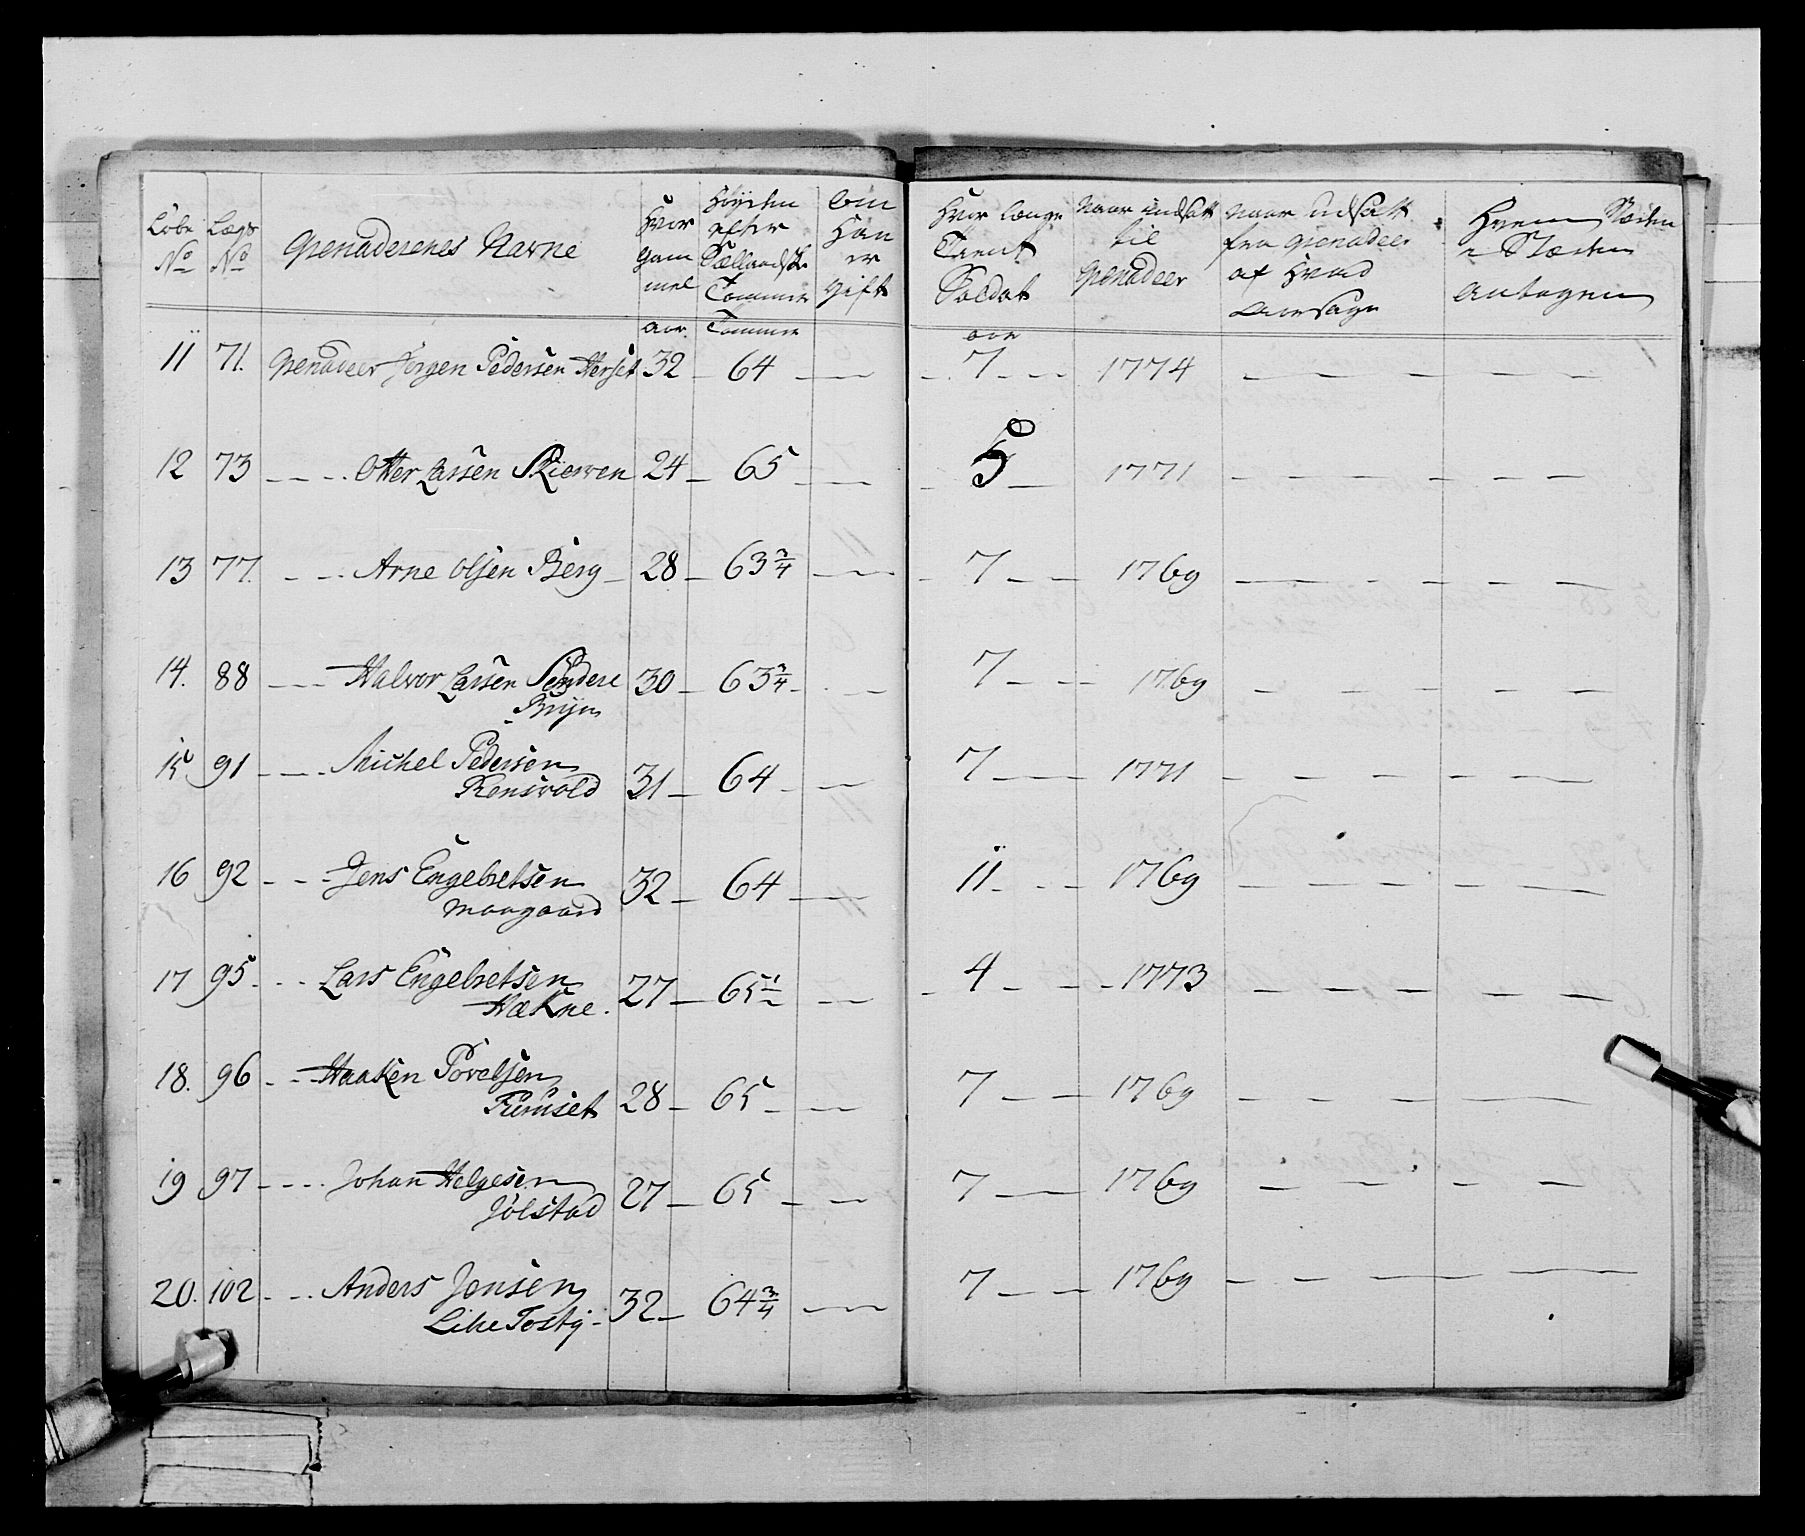 Löbe No
Lægs No
Grenaderenes Navne
Hvor gam mel
Høyden efter Sællandsk Tommer
Om Han er gift
Hvor længe Tient Soldat
Naar indsatt til Grenadeer
Naar udsatt fra Grenadeer af Hvad Aarsage
Hvem i Stæden Antagen
aar Tommer aar
11 71. Grenadeer Jørgen Pedersen Herset 32 64 7 1774
12 73 Otter Larsen Skierven 24 65 5 1771
13 77. Arne Olsen Berg 28 63 3/4 7 1769
14. 88 Halvor Larsen Søndere 30 63 3/4 7 1769
15 91 Michel Pedersen 31 64 7 1771
Rensvold
16 92 Jens Engebretsen 32 64 11 1769
Maagaard
17 95. Lars Engebretsen 27 65 1/2 4 1773
Hækne.
18. 96 Haaken Povelsen 28 65 7 1769
Remset
19 97 Johan Helgesen 27 65 7 1769
Jølstad
20. 102 Anders Jensen 32 64 3/4 7 1769